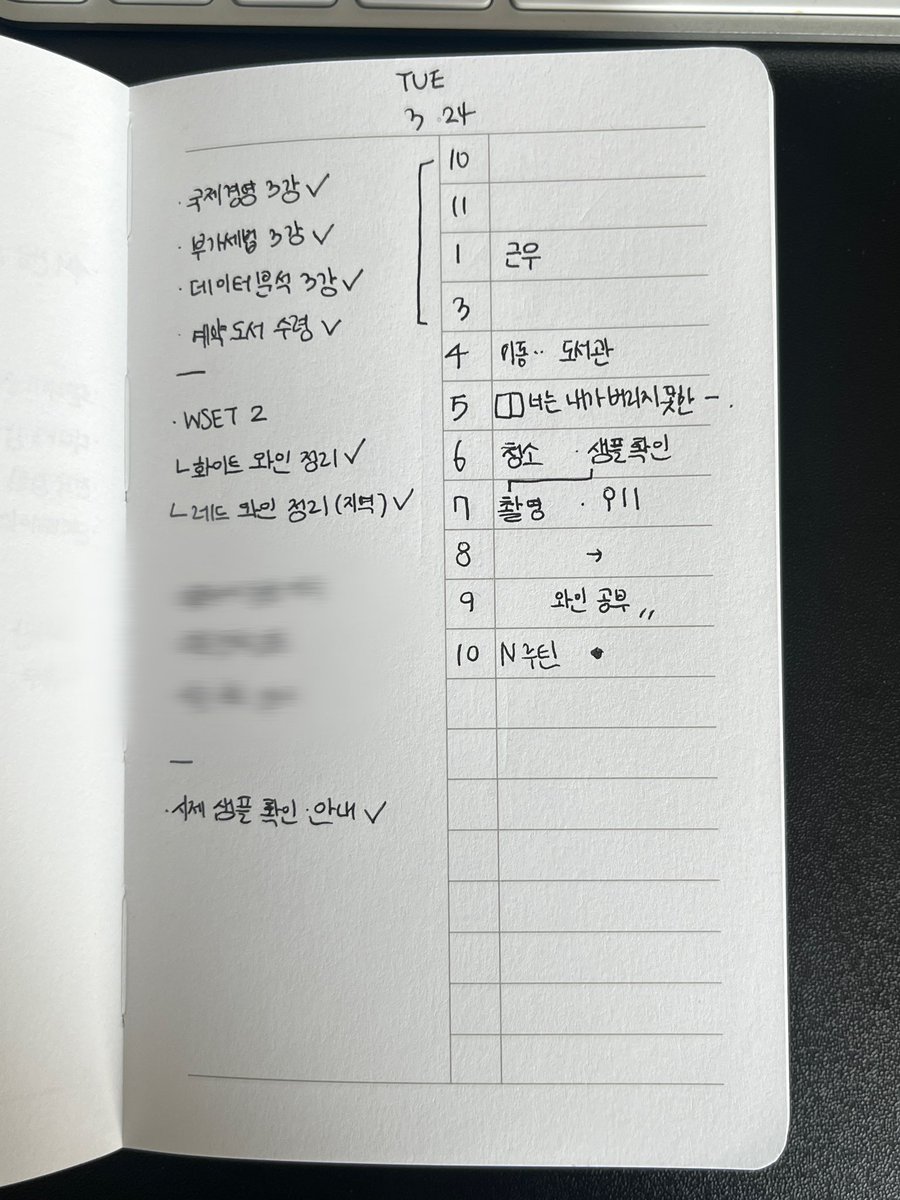 TUE
3.24
· 국제경영 3강 ✓
· 부가세법 3강 ✓
· 데이터분석 3강 ✓
· 예약도서 수령 ✓
—
· WSET 2
ㄴ화이트 와인 정리 ✓
ㄴ레드 와인 정리 (지역) ✓
—
· 시제 샘플 확인 · 안내 ✓
10
11
1 근무
3
4 이동·· 도서관
5 너는 내가 버리지 못한 — .
6 청소 · 샘플확인
7 촬영 ·
8 →
9 와인 공부 〃
10 N루틴 •